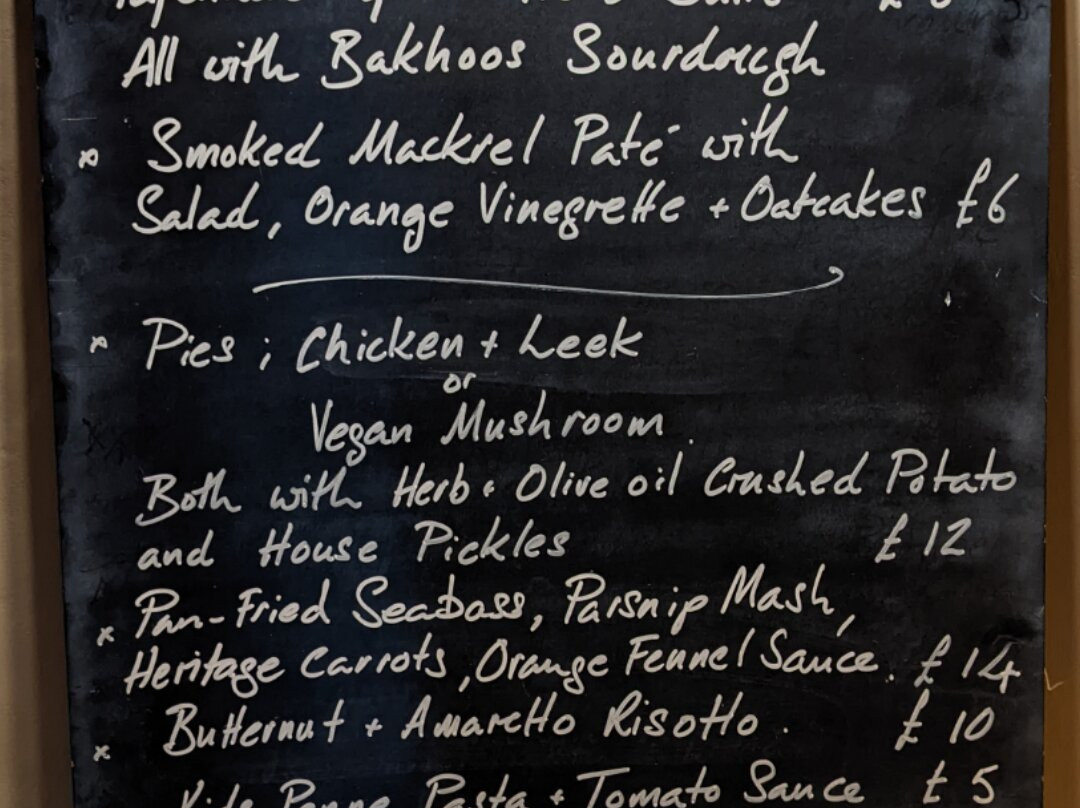 All with Bakhoos Sourdough
* Smoked Mackrel Paté with
Salad, Orange Vinegrette + Oatcakes £6
* Pies ; Chicken + Leek
or
Vegan Mushroom.
Both with Herb + Olive oil Crushed Potato
and House Pickles £12
* Pan-Fried Seabass, Parsnip Mash,
Heritage Carrots, Orange Fennel Sauce. £14
* Butternut + Amaretto Risotto. £10
Kids Penne Pasta + Tomato Sauce £5